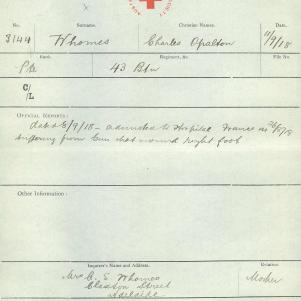 No. Surname. Christian Names.
3144 Whomes Charles Opalton 11/9/18
Rank. Regiment, &c. File No.
Pte 43 Btn
C/L
OFFICIAL REPORTS:
dated 8/9/18 - admitted to Hospital France
suffering from Gun shot wound right foot
Other Information:
Inquirer's Name and Address. Relation
Mrs C. E. Whomes Mother
Claxton Street
Adelaide